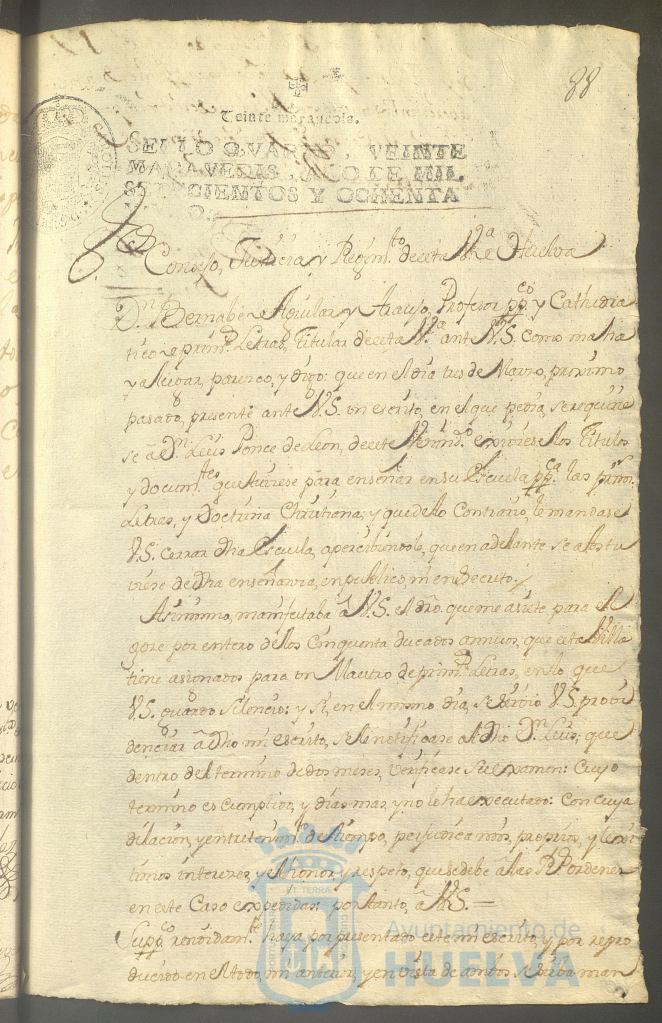 88
Veinte maravedis.
SELLO QVARTO, VEINTE
MARAVEDIS, AÑO DE MIL
SETECIENTOS Y OCHENTA
Concejo, Justicia y Regim.to de esta V.a de Huelva
D.n Bernabe de Aguilar y Araujo, Profesor pp.co y Cathedra
tico de prim.s Letras, Titular de esta V.a ante V.S. como mas ha
ya lugar, parezco, y digo: que en el dia tres de Marzo, proximo
pasado, presenté ante V.S. un escrito, en el que pedia, se requirie
se a D.n Luis Ponce de Leon, de este Vecind.o expusiese los Titulos
y docum.tos que tuviese para enseñar en su Escuela pp.ca las prim.s
Letras, y Doctrina Christiana, y que de lo contrario, le mandase
V.S. cerrar dha Escuela, apercibiendole, que en adelante se abstu
viese de dha enseñanza, en publico, ni en secreto.
Asimismo, manifestaba a V.S. el dro. que me asiste para el
gose por entero de los Cinquenta ducados annuos, que esta Villa
tiene asignados para un Maestro de prim.s Letras, en lo que
V.S. guardó silencio: y si, en el mismo dia, se sirvio V.S. provi
denciar a dho mi escrito, se le notificase al dho D.n Luis, que
dentro del termino de dos meses, verificase su examen: Cuyo
termino es cumplido, y dias mas, y no lo ha executado: Con cuya
dilacion, y entretenim.to de tiempo, perjudica mis proprios, y lexi
timos intereses, y el honor y respeto, que se debe a las R.s Ordenes
en este Caso expedidas; por tanto, a V.S. =
Supp.co rendidam.te haya por presentado este mi escrito, y por repro
ducido en el todo, mi anterior, y en vista de ambos, se sirva man
Ayuntamiento de
HUELVA